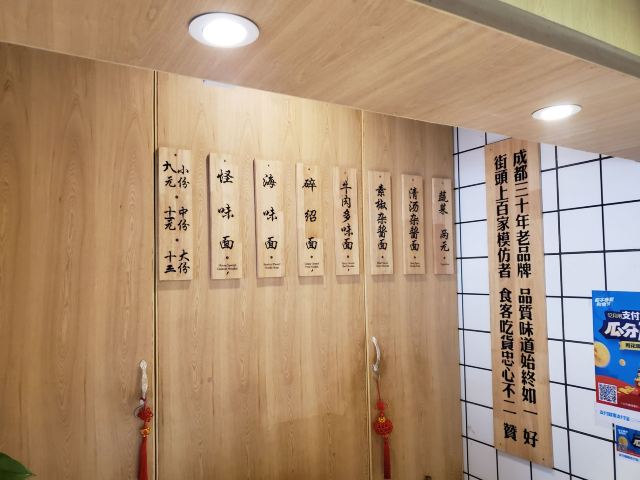 小份 中份 大份
九元 十一元 十三
怪味面
海味面
碎绍面
牛肉多味面
素椒杂酱面
清汤杂酱面
蔬菜 两元
成都二十年老品牌 品質味道始終如一 好
街頭上百家模仿者 食客吃貨忠心不二 贊
支付
瓜分